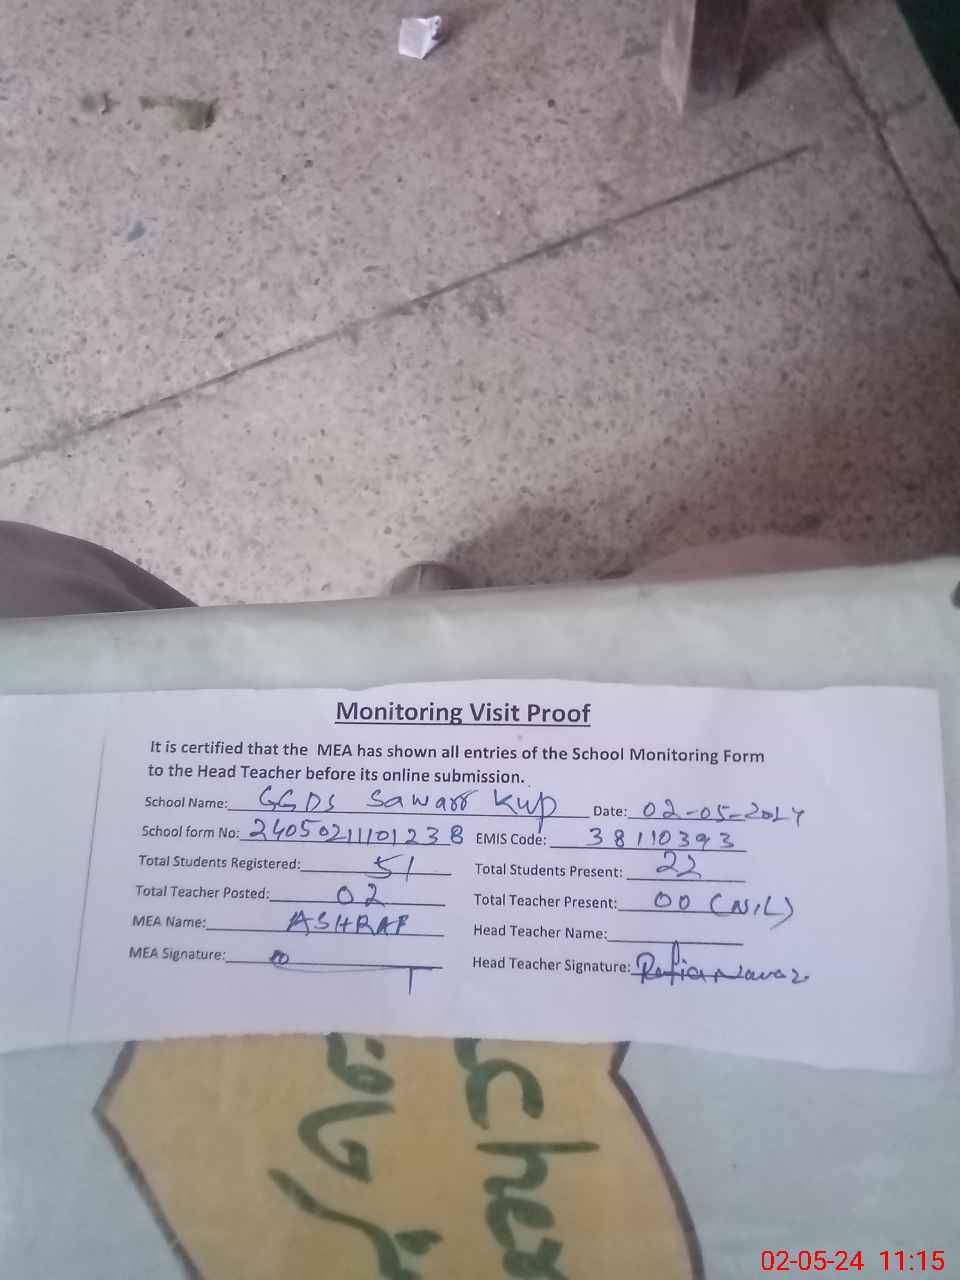 Monitoring Visit Proof
It is certified that the MEA has shown all entries of the School Monitoring Form
to the Head Teacher before its online submission.
School Name: GGDS Sawarr Kup Date: 02-05-2024
School form No: 2405021101238 EMIS Code: 38110393
Total Students Registered: 51 Total Students Present: 22
Total Teacher Posted: 02 Total Teacher Present: 00 (NIL)
MEA Name: ASHRAF Head Teacher Name:
MEA Signature: Head Teacher Signature: Rafia Nawaz
02-05-24 11:15